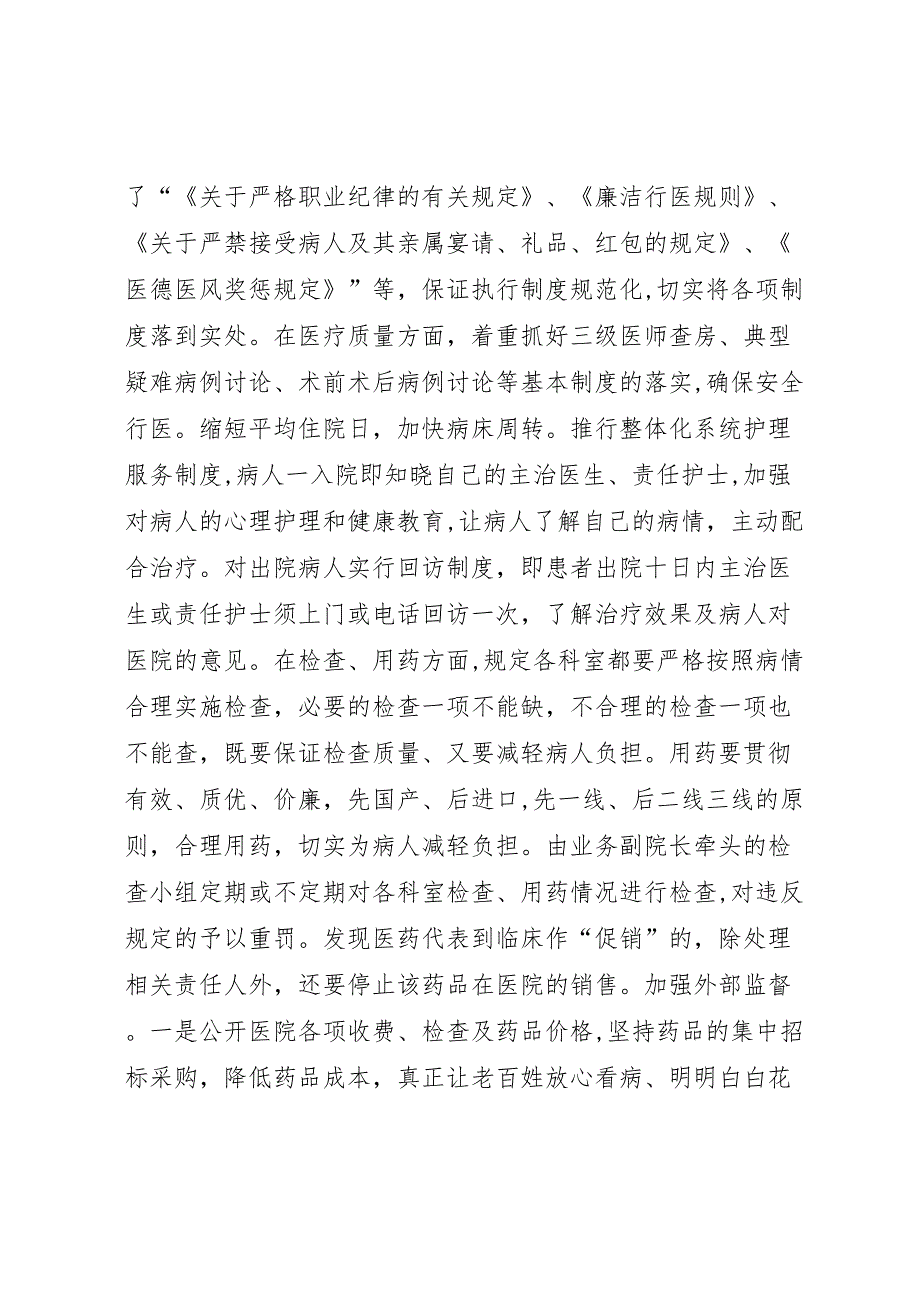 了“《关于严格职业纪律的有关规定》、《廉洁行医规则》、
《关于严禁接受病人及其亲属宴请、礼品、红包的规定》、《
医德医风奖惩规定》”等，保证执行制度规范化,切实将各项制
度落到实处。在医疗质量方面，着重抓好三级医师查房、典型
疑难病例讨论、术前术后病例讨论等基本制度的落实,确保安全
行医。缩短平均住院日，加快病床周转。推行整体化系统护理
服务制度,病人一入院即知晓自己的主治医生、责任护士,加强
对病人的心理护理和健康教育,让病人了解自己的病情，主动配
合治疗。对出院病人实行回访制度，即患者出院十日内主治医
生或责任护士须上门或电话回访一次，了解治疗效果及病人对
医院的意见。在检查、用药方面,规定各科室都要严格按照病情
合理实施检查，必要的检查一项不能缺，不合理的检查一项也
不能查，既要保证检查质量、又要减轻病人负担。用药要贯彻
有效、质优、价廉，先国产、后进口,先一线、后二线三线的原
则，合理用药，切实为病人减轻负担。由业务副院长牵头的检
查小组定期或不定期对各科室检查、用药情况进行检查,对违反
规定的予以重罚。发现医药代表到临床作“促销”的，除处理
相关责任人外，还要停止该药品在医院的销售。加强外部监督
。一是公开医院各项收费、检查及药品价格,坚持药品的集中招
标采购，降低药品成本，真正让老百姓放心看病、明明白白花